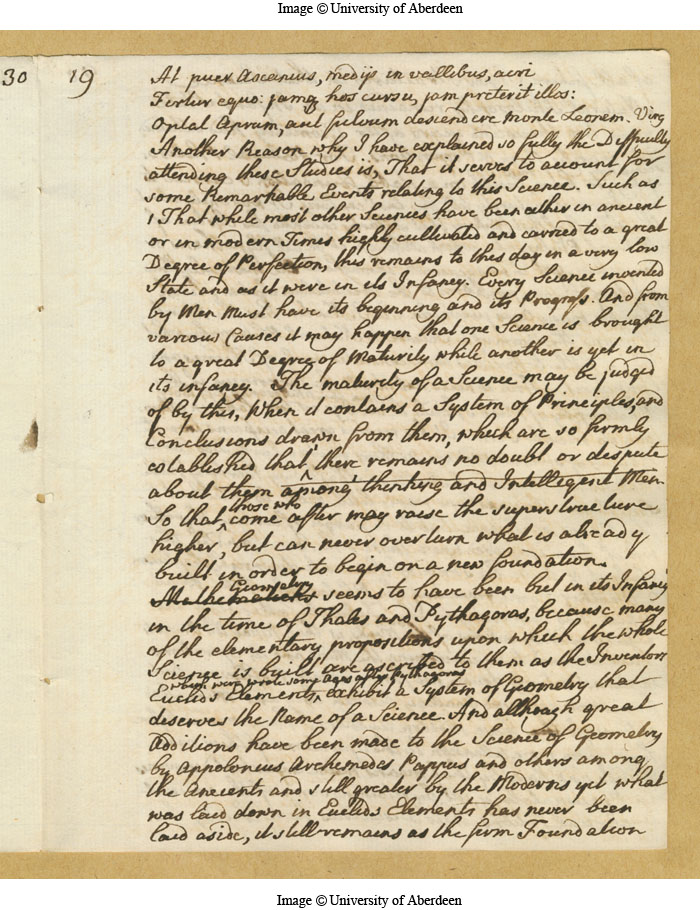 Image © University of Aberdeen
30 19
At puer Ascanius, medijs in vallibus, acri
Fertur equo: jamq hos cursu, jam preterit illos:
Optal Aprum, aut fulvum descendere monte Leonem. Virg
Another Reason why I have explained so fully the Difficulty
attending these Studies is, That it serves to account for
some Remarkable Events relating to this Science. Such as
1 That while most other Sciences have been either in ancient
or in modern Times highly cultivated and carried to a great
Degree of Perfection, this remains to this day in a very low
State and as it were in its Infancy. Every Science invented
by Men Must have its beginning and its Progress. And from
various Causes it may happen that one Science is brought
to a great Degree of Maturity while another is yet in
its infancy. The maturity of a Science may be judged
of by this, When it contains a System of Principles, and
Conclusions drawn from them, which are so firmly
established that, there remains no doubt or dispute
about them among thinking and Intelligent Men.
those who
So that, come after may raise the superstructure
higher, but can never overturn what is already
built in order to begin on a new foundation.
Geometry
Mathematicks seems to have been but in its Infancy
in the time of Thales and Pythagoras, because many
of the elementary propositions upon which the whole
Science is built are ascribed to them as the Inventors
which were wrote some ages after Pythagoras
Euclids Elements, exhibit a System of Geometry that
deserves the Name of a Science. And although great
Additions have been made to the Science of Geometry
by Appolonius Archemedes Pappus and others among
the Ancients and still greater by the Moderns yet what
was laid down in Euclids Elements has never been
laid aside, it still remains as the firm Foundation
Image © University of Aberdeen